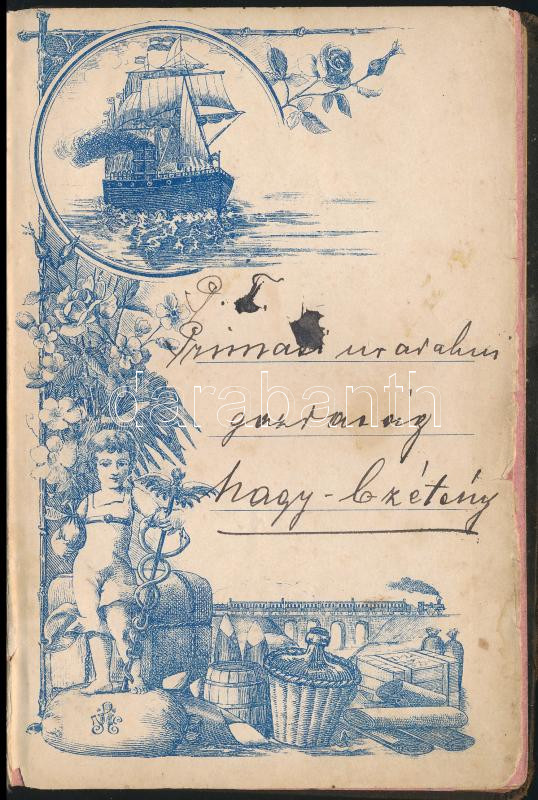 P. T.
Primási uradalmi
gazdaság
Nagy-Czétény
darabanth